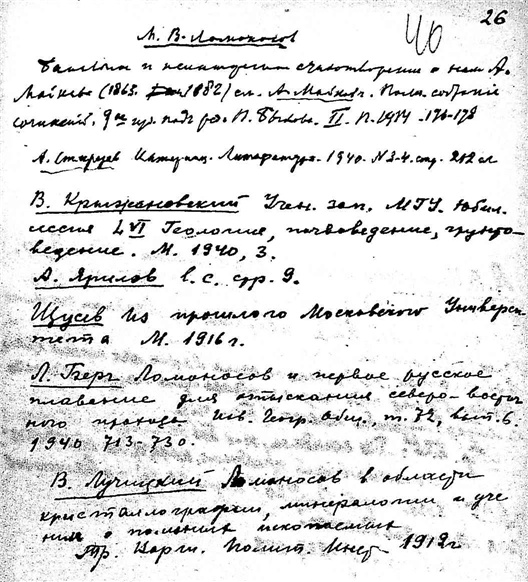 26
40
М. В. Ломоносов
и стихотворении о нем А.
Майкова (1865. 1882) см. А. Майков. Полн. собрание
сочинений. 9ое изд. под ред. П. Быкова. II. П. 1914. 176-178
А. Старцев Интернац. Литература. 1940. N 3-4. стр. 212 сл
В. Крыжановский Учен. зап. МГУ. Юбил.
серия LVI Геология, почвоведение, грунто-
ведение. М. 1940, 3.
А. Ярилов l. c. стр. 9.
Щусев Из прошлого Московского Универси-
тета М. 1916 г.
Л. Берг Ломоносов и первое русское
плавание для отыскания северо-восточ
ного прохода Изв. Геогр. Общ., т. 72, вып. 6.
1940. 713-730.
В. Лучицкий Ломоносов в области
кристаллографии, минералогии и уче
ния о полезных ископаемых
Тр. Полит. Инст. 1912 г